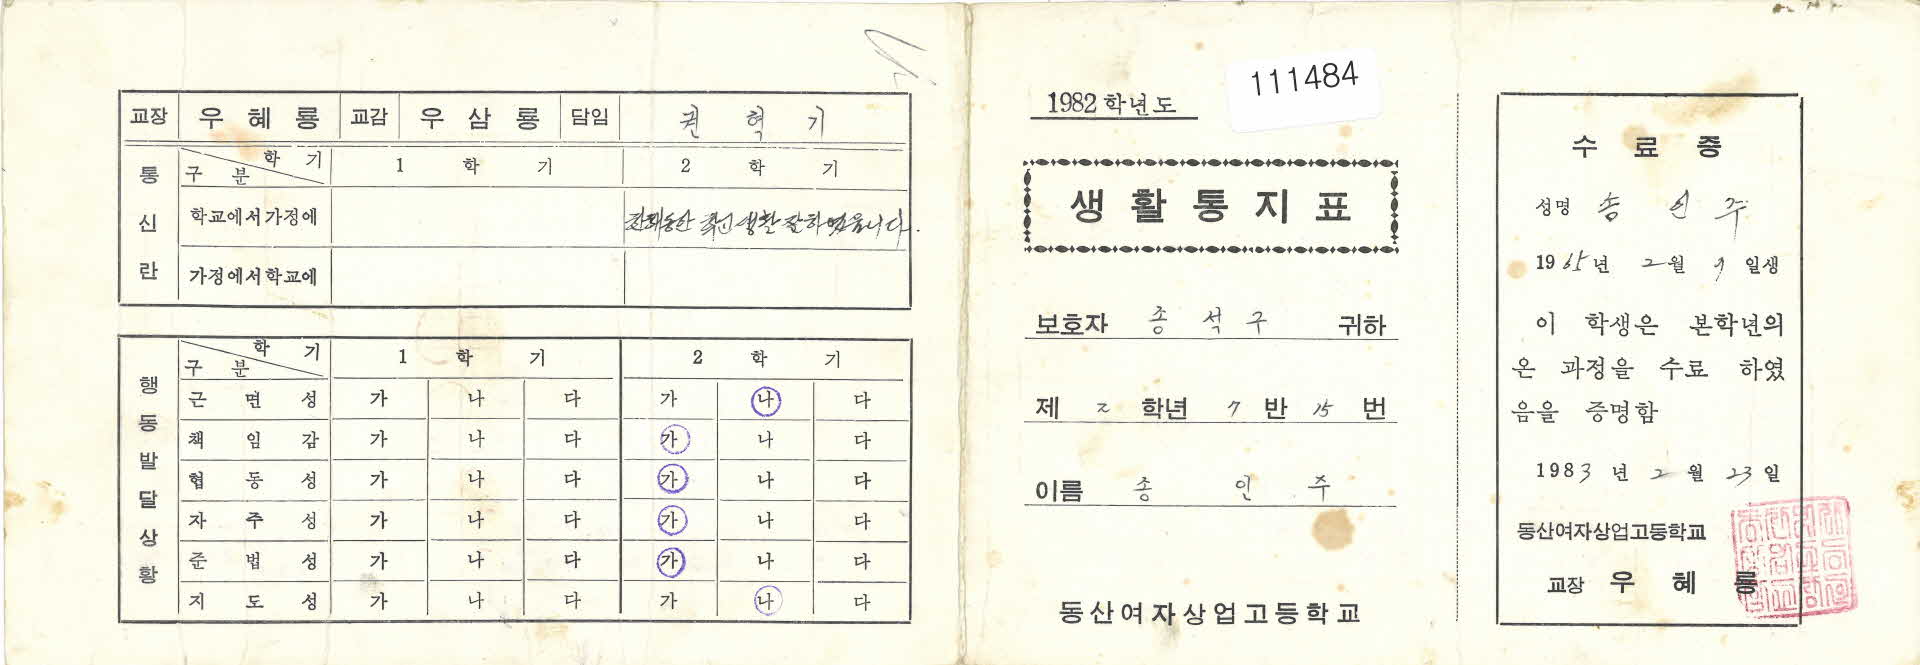 교장 우혜룡 교감 우삼룡 담임 권혁기
통신란
학기 구분 1학기 2학기
학교에서가정에 생활 잘하였읍니다.
가정에서학교에
행동발달상황
학기 구분 1학기 2학기
근면성 가 나 다 가 나 다
책임감 가 나 다 가 나 다
협동성 가 나 다 가 나 다
자주성 가 나 다 가 나 다
준법성 가 나 다 가 나 다
지도성 가 나 다 가 나 다
111484
1982학년도
생활통지표
보호자 송석구 귀하
제 2 학년 7 반 15 번
이름 송인주
동산여자상업고등학교
수료증
성명 송인주
1965년 2월 9일생
이 학생은 본학년의
온 과정을 수료 하였
음을 증명함
1983년 2월 23일
동산여자상업고등학교
교장 우혜룡